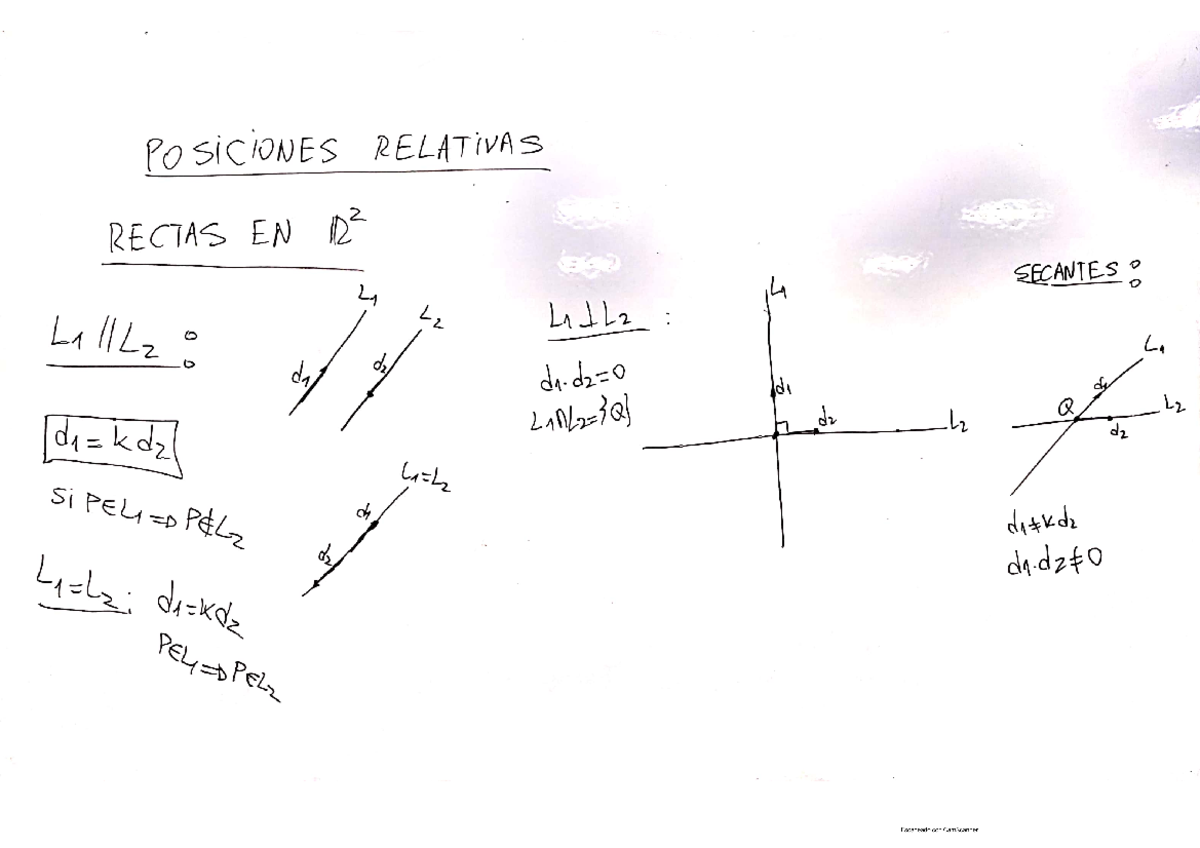 POSICIONES RELATIVAS
RECTAS EN ℝ²
L1 // L2 :
L1
L2
d1
d2
d1 = k d2
Si P∈L1 ⇒ P∉L2
L1=L2
d1
d2
L1=L2 : d1=kd2
P∈L1 ⇒ P∈L2
L1 ⊥ L2 :
d1·d2=0
L1∩L2={Q}
L1
d1
d2
L2
SECANTES :
L1
d1
Q
L2
d2
d1≠kd2
d1·d2≠0
Escaneado con CamScanner